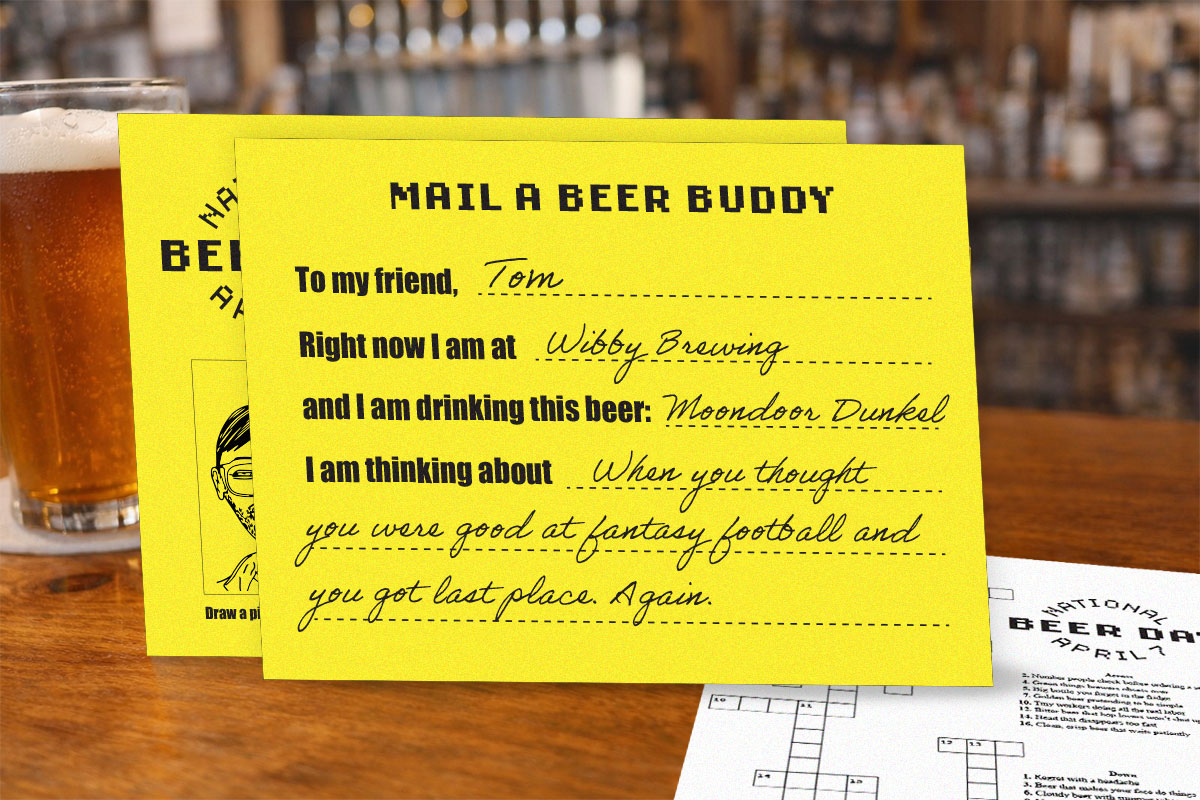 MAIL A BEER BUDDY
To my friend, Tom
Right now I am at Wibby Brewing
and I am drinking this beer: Moondoor Dunkel
I am thinking about When you thought
you were good at fantasy football and
you got last place. Again.
Draw a pi
NATIONAL
BEER DA
APRIL 7
Across
2. Number people check before ordering a
4. Green things brewers obsess over
5. Big bottle you forget in the fridge
7. Golden beer pretending to be simple
10. Tiny workers doing all the real labor
12. Bitter beer that hop lovers won't shut up
14. Head that disappears too fast
16. Clean, crisp beer that waits patiently
10
11
12 13
14
15
Down
1. Regret with a headache
3. Beer that makes your face do things
6. Cloudy beer with summer